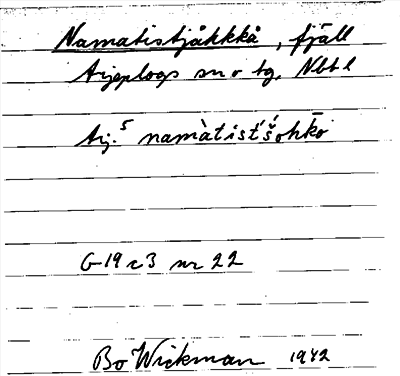 Namatistjåhkkå, fjäll
Arjeplogs sn o tg, Nbt l
Arj.⁵ namàtisťšohkō
G 19 c 3 nr 22
Bo Wickman 1942